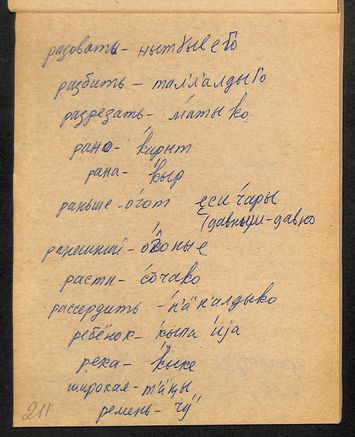 разовать - нытвыебо
разбить - тал'л'алдыбо
раздрезать - ма́тыко
рано - ќарыт
рана - ќыр
раньше - о́гот еси ча́ры
давным-давно
ранешний - о́боные
расти - со́чако
рассердить - н'ӓн'алдыко
ребёнок - кыпа ија
река - ќыке
широкая - тӓӊы
ремень - чӱ
211